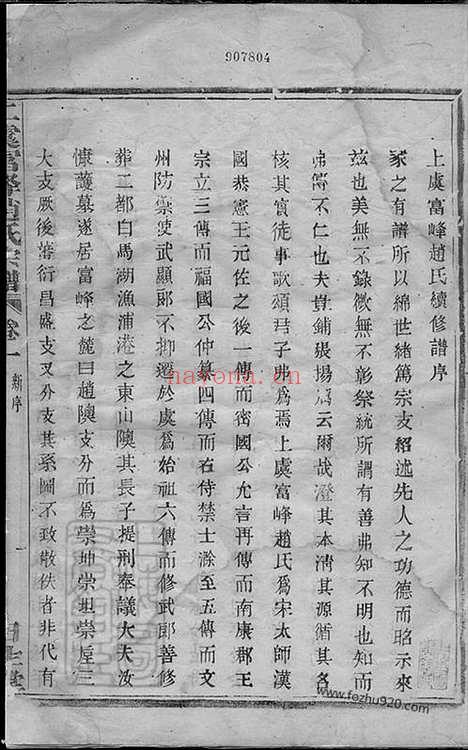 907804
上虞富峰趙氏續修譜序
家之有譜所以綿世緒篤宗支紹述先人之功德而昭示來
茲也美無不錄微無不彰祭統所謂有善弗知不明也知而
弗傳不仁也夫貴鋪張揚厲云爾哉澄其本清其源循其名
核其實徒事歌頌君子弗為焉上虞富峰趙氏為宋太師漢
國恭憲王元佐之後一傳而密國公允言再傳而南康郡王
宗立三傳而福國公仲 四傳而右侍禁士滁至五傳而文
州防禦使武顯郎不抑遷於虞為始祖六傳而修武郎善修
葬二都白馬湖漁浦港之東山隩其長子提刑奉議大夫汝
慷護墓遂居富峰之麓曰趙隩支分而為崇坤崇坦崇垕三
大支厥後蕃衍昌盛支又分支其系圖不致散佚者非代有
上虞富峰趙氏宗譜
卷一
新序
www.fezhu920.com